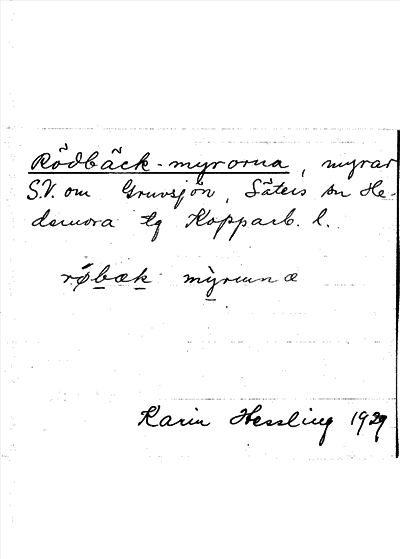 Rödbäck-myrorna, myrar
S.V. om Gruvsjön, Säters sn He-
demora tg Kopparb. l.
røbæk mỳrumæ
Karin Hessling 1929